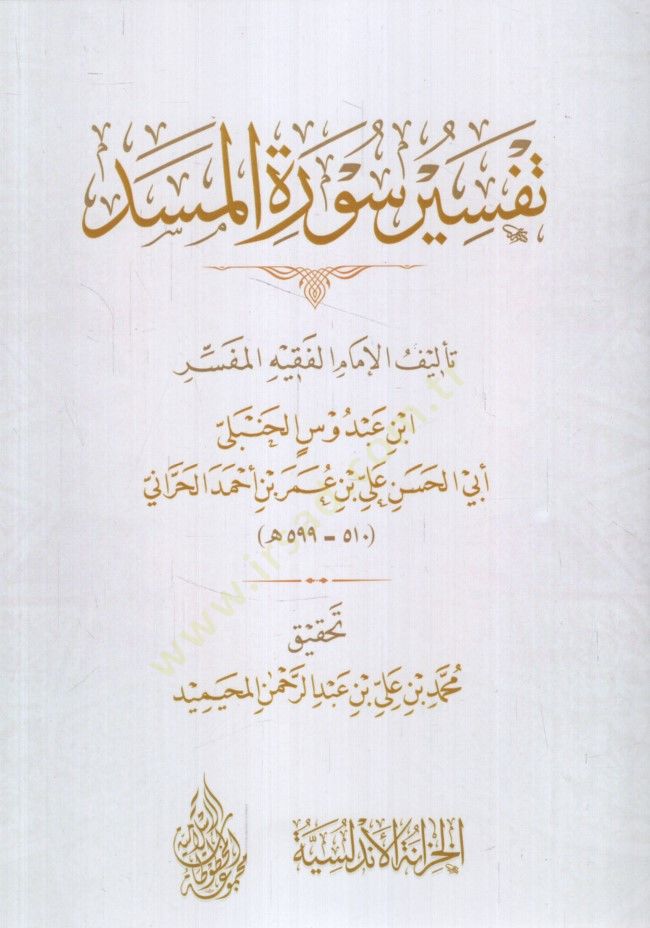 تَفْسِيرُ سُورَةِ الْمَسَدِ
تَأْلِيفُ الإِمَامِ الفَقِيهِ المُفَسِّرِ
ابْنِ عَبْدُوْسٍ الحَنْبَلِيِّ
أَبِي الحَسَنِ عَلِيِّ بْنِ عُمَرَ بْنِ أَحْمَدَ الحَرَّانِيِّ
(٥١٠ - ٥٩٩هـ)
تَحْقِيق
مُحَمَّد بْنِ عَلِيِّ بْنِ عَبْدِ الرَّحْمٰنِ المحيميد
الخِزَانَةُ الأَنْدَلُسِيَّةُ
مجموعة المخطوطات الإسلامية
www.irsad.com.tr